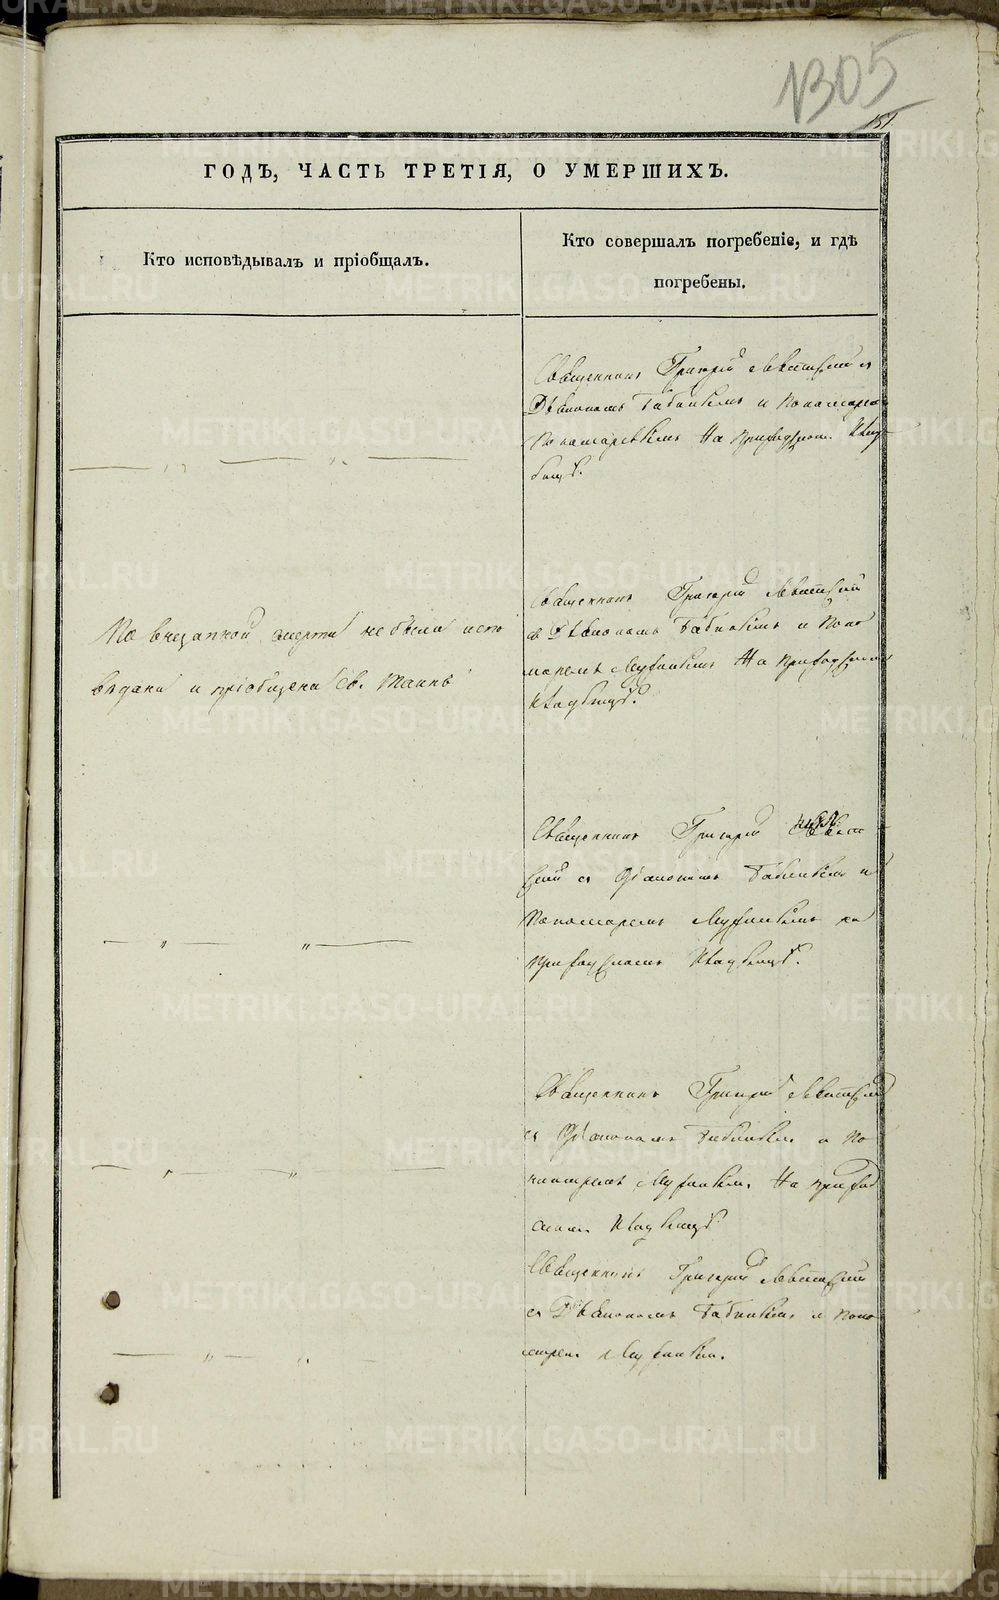 1305
181
ГОДЪ, ЧАСТЬ ТРЕТІЯ, О УМЕРШИХЪ.
Кто исповѣдывалъ и пріобщалъ.
Кто совершалъ погребеніе, и гдѣ
погребены.
Священникъ Григорій с
Діакономъ Бабинымъ и
Пономаревымъ На приходскомъ Клад-
бищѣ.
По внезапной смерти не была испо
вѣдана и пріобщена Св. Таинъ
Священникъ Григорій
с Діакономъ Бабинымъ и Поно
маремъ На приходскомъ
Кладбищѣ.
Священникъ Григорій
с Діакономъ Бабинымъ и
Пономаремъ на
приходскомъ Кладбищѣ.
Священникъ Григорій
с Діакономъ и По
номаремъ На приход
скомъ Кладбищѣ
Священникъ Григорій
с Діакономъ Бабинымъ и Поно
маремъ
METRIKI.GASO-URAL.RU